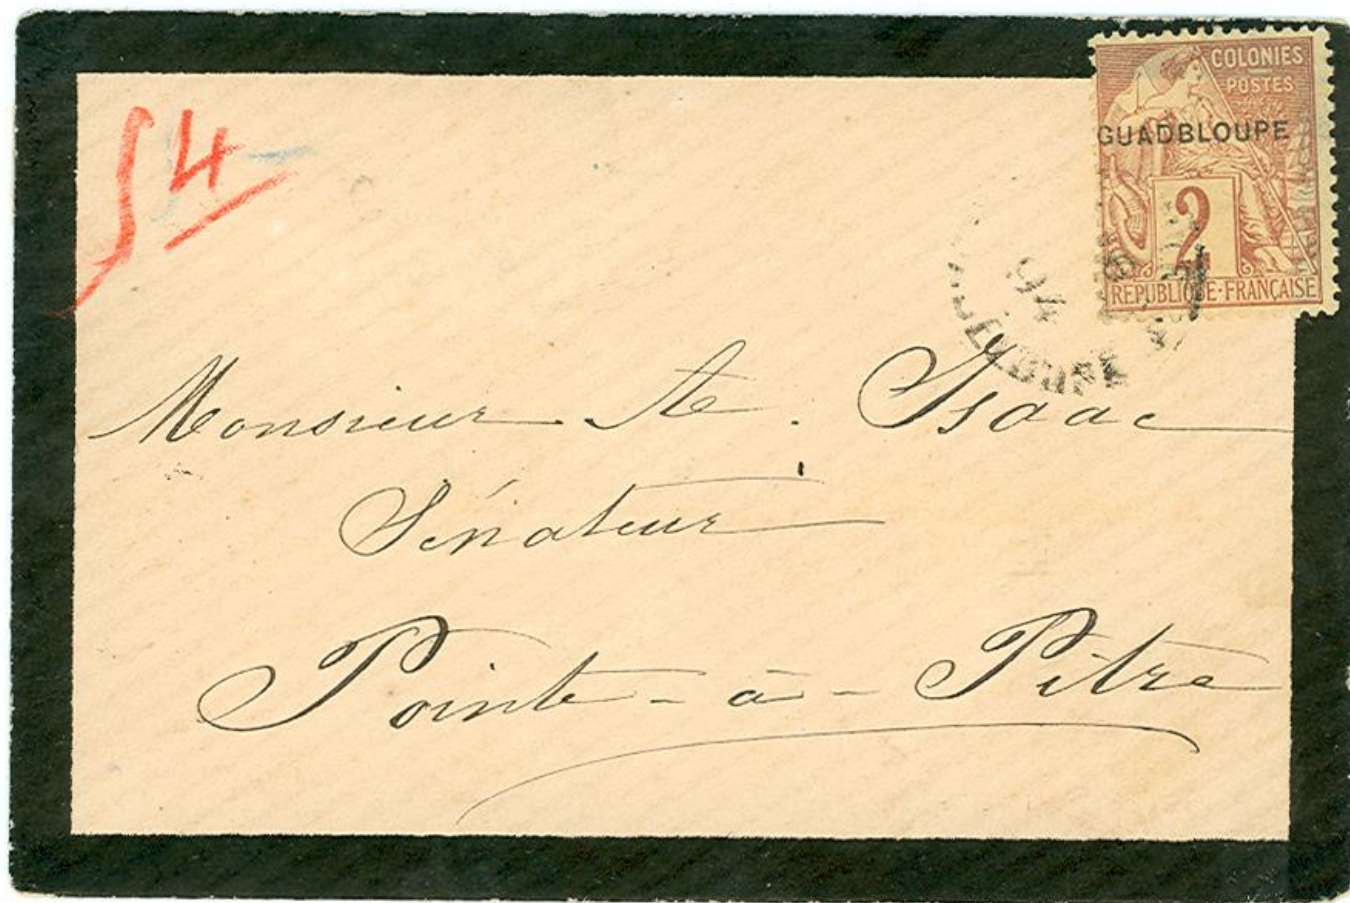 54
COLONIES
POSTES
GUADBLOUPE
2
REPUBLIQUE·FRANÇAISE
94
Monsieur Ate. Isaac
Sénateur
Pointe-à-Pitre